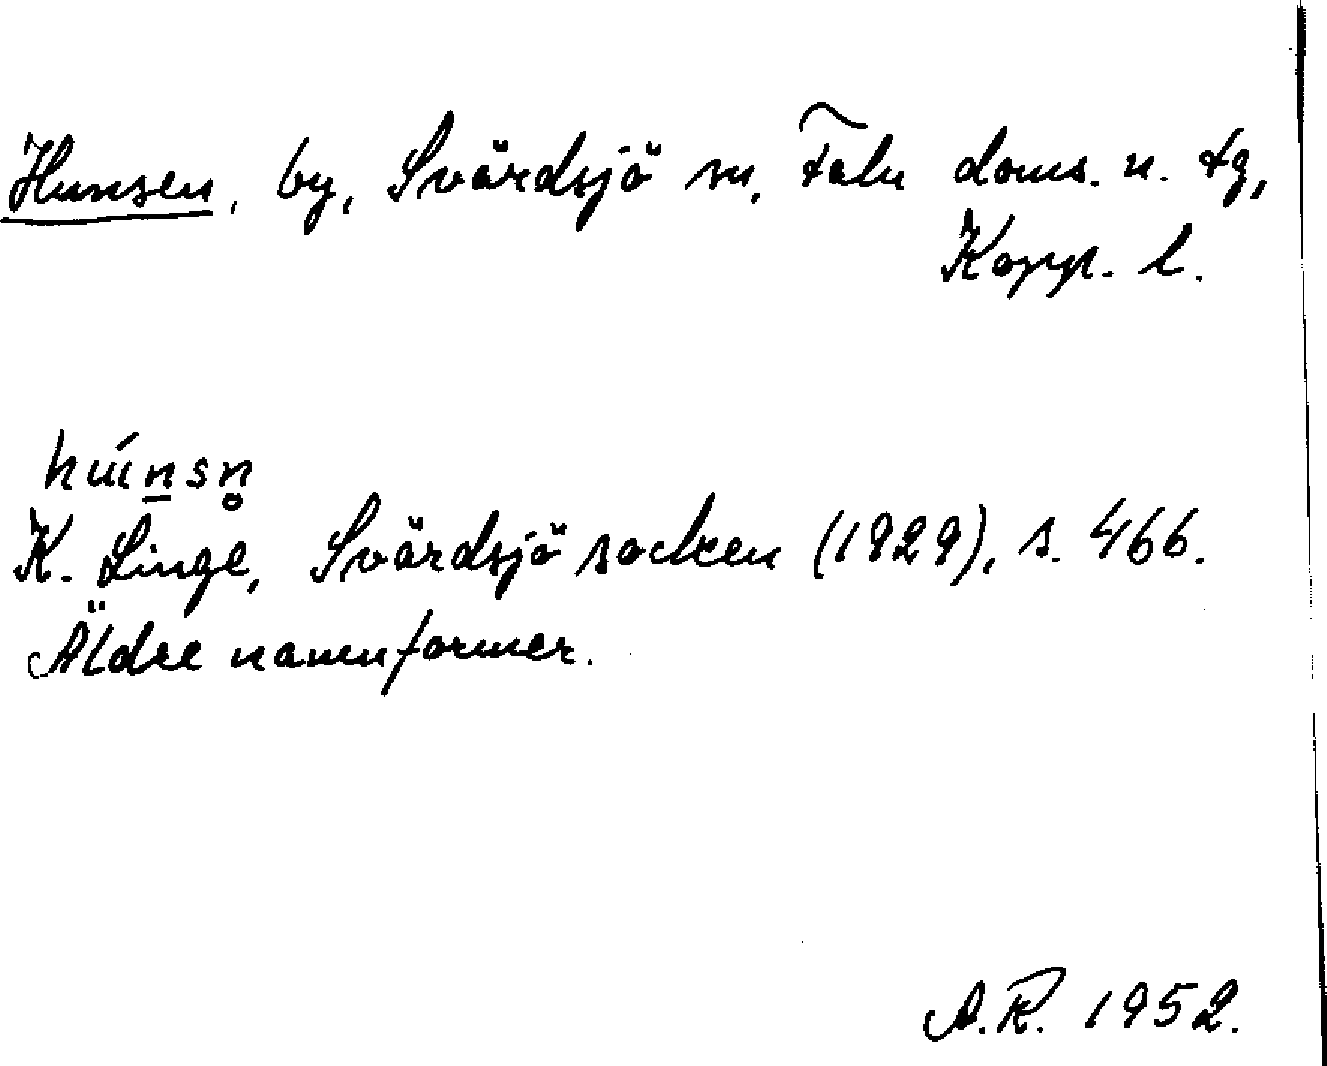 Hunsen, by, Svärdsjö sn, Falu doms. o. tg,
Kopp. l.
hún̲sn̥
K. Linge, Svärdsjö socken (1929), s. 466.
Äldre namnformer.
A.R. 1952.